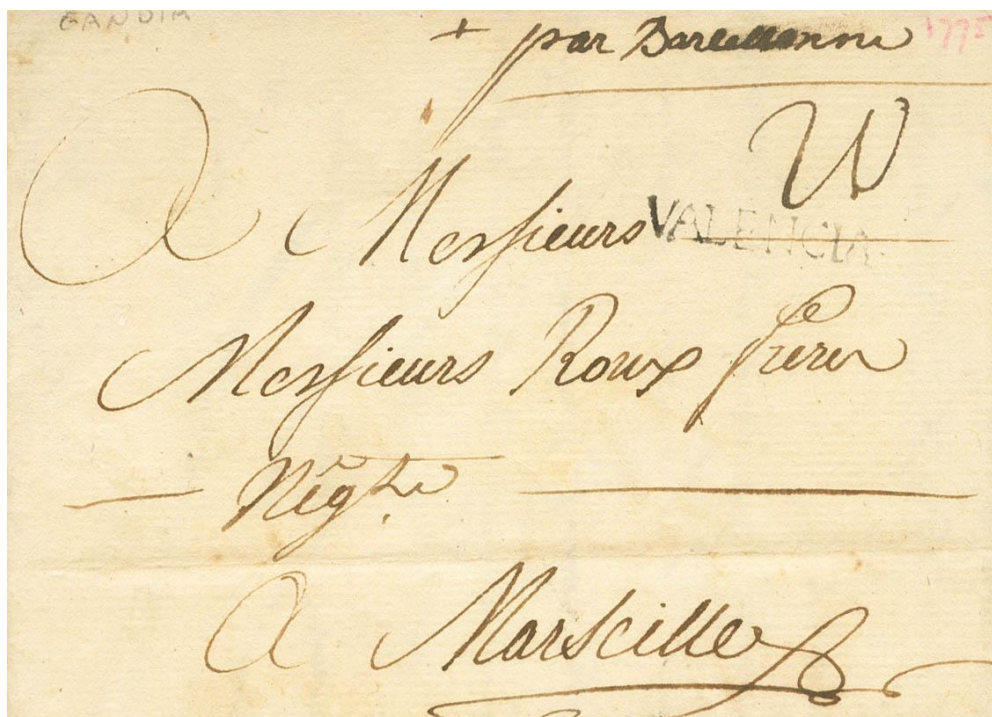 GANDIA
+ par Barcelonne 1775
W
A Messieurs VALENCIA
Messieurs Roux freres
Negts
A Marseille